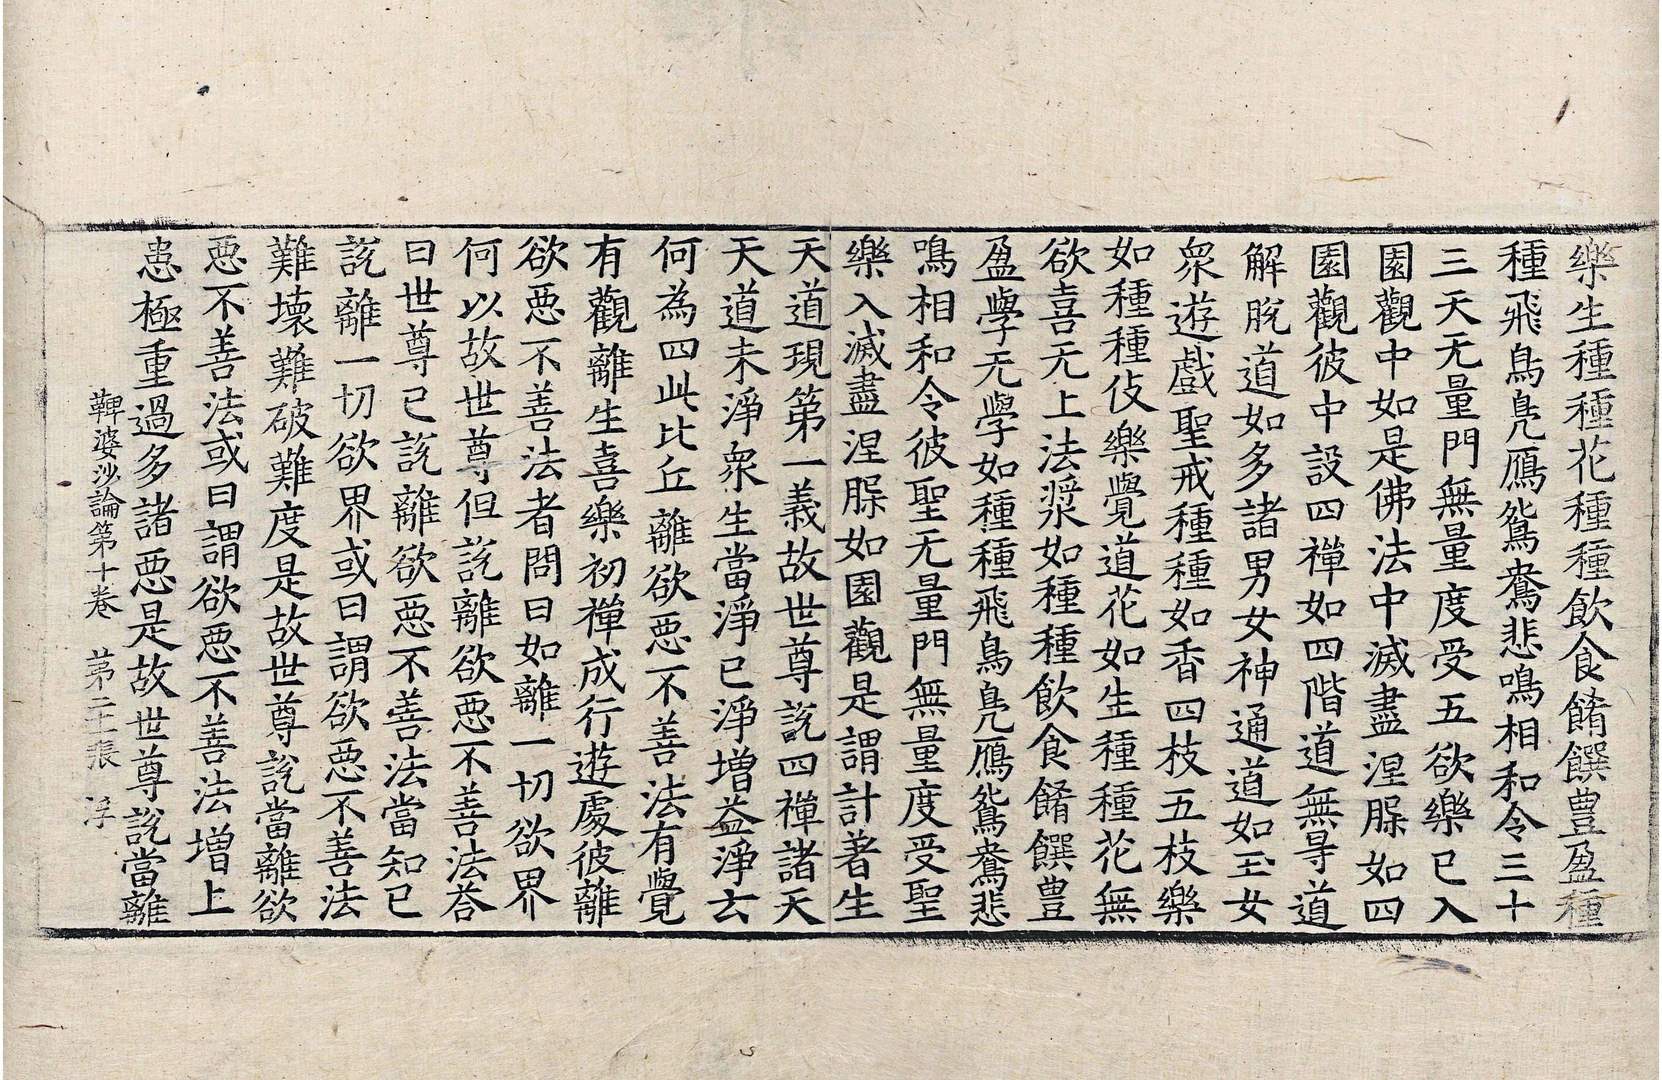 樂生種種花種種飲食餚饌豊盈種
種飛鳥鳧鴈鴛鴦悲鳴相和令三十
三天无量門無量度受五欲樂已入
園觀中如是佛法中滅盡涅槃如四
園觀彼中設四禪如四階道無㝵道
解脫道如多諸男女神通道如玉女
衆遊戲聖戒種種如香四枝五枝樂
如種種伎樂覺道花如生種種花無
欲喜无上法漿如種種飲食餚饌豊
盈學无學如種種飛鳥鳧鴈鴛鴦悲
鳴相和令彼聖无量門無量度受聖
樂入滅盡涅槃如園觀是謂計著生
天道現第一義故世尊說四禪諸天
天道未淨衆生當淨已淨增益淨去
何為四此比丘離欲惡不善法有覺
有觀離生喜樂初禪成行遊處彼離
欲惡不善法者問曰如離一切欲界
何以故世尊但說離欲惡不善法荅
曰世尊已說離欲惡不善法當知已
說離一切欲界或曰謂欲惡不善法
難壞難破難度是故世尊說當離欲
惡不善法或曰謂欲惡不善法增上
患極重過多諸惡是故世尊說當離
鞞婆沙論第十卷 第二十張 浮